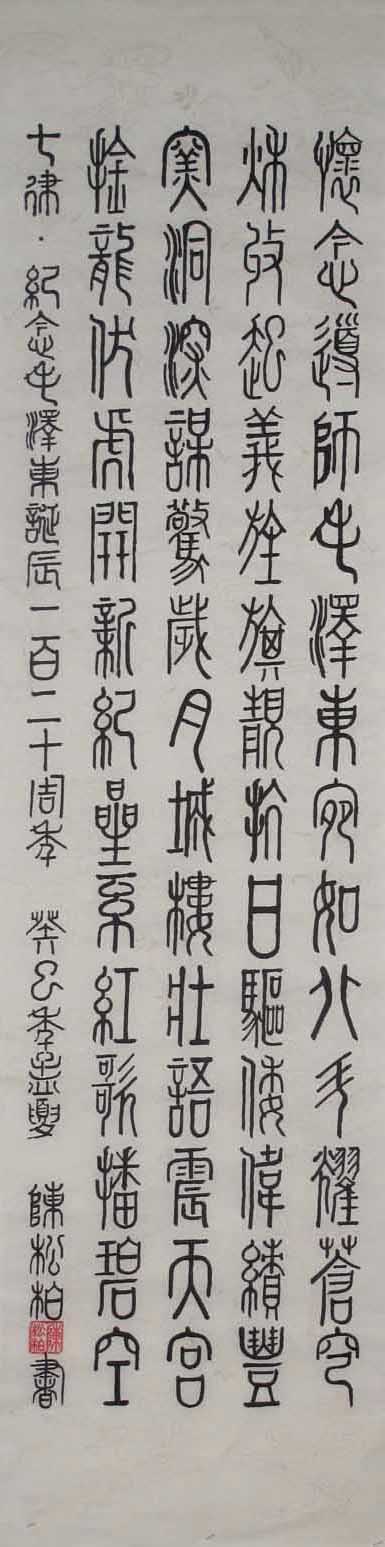 懷念導師毛澤東宛如北斗耀蒼穹
秋收起義旌旗靚抗日驅倭偉績豐
窯洞深謀驚歲月城樓壯語震天宮
擒龍伏虎開新紀星系紅歌播碧空
七律·紀念毛澤東誕辰一百二十周年 癸巳年孟夏 陳松柏書
陳松柏